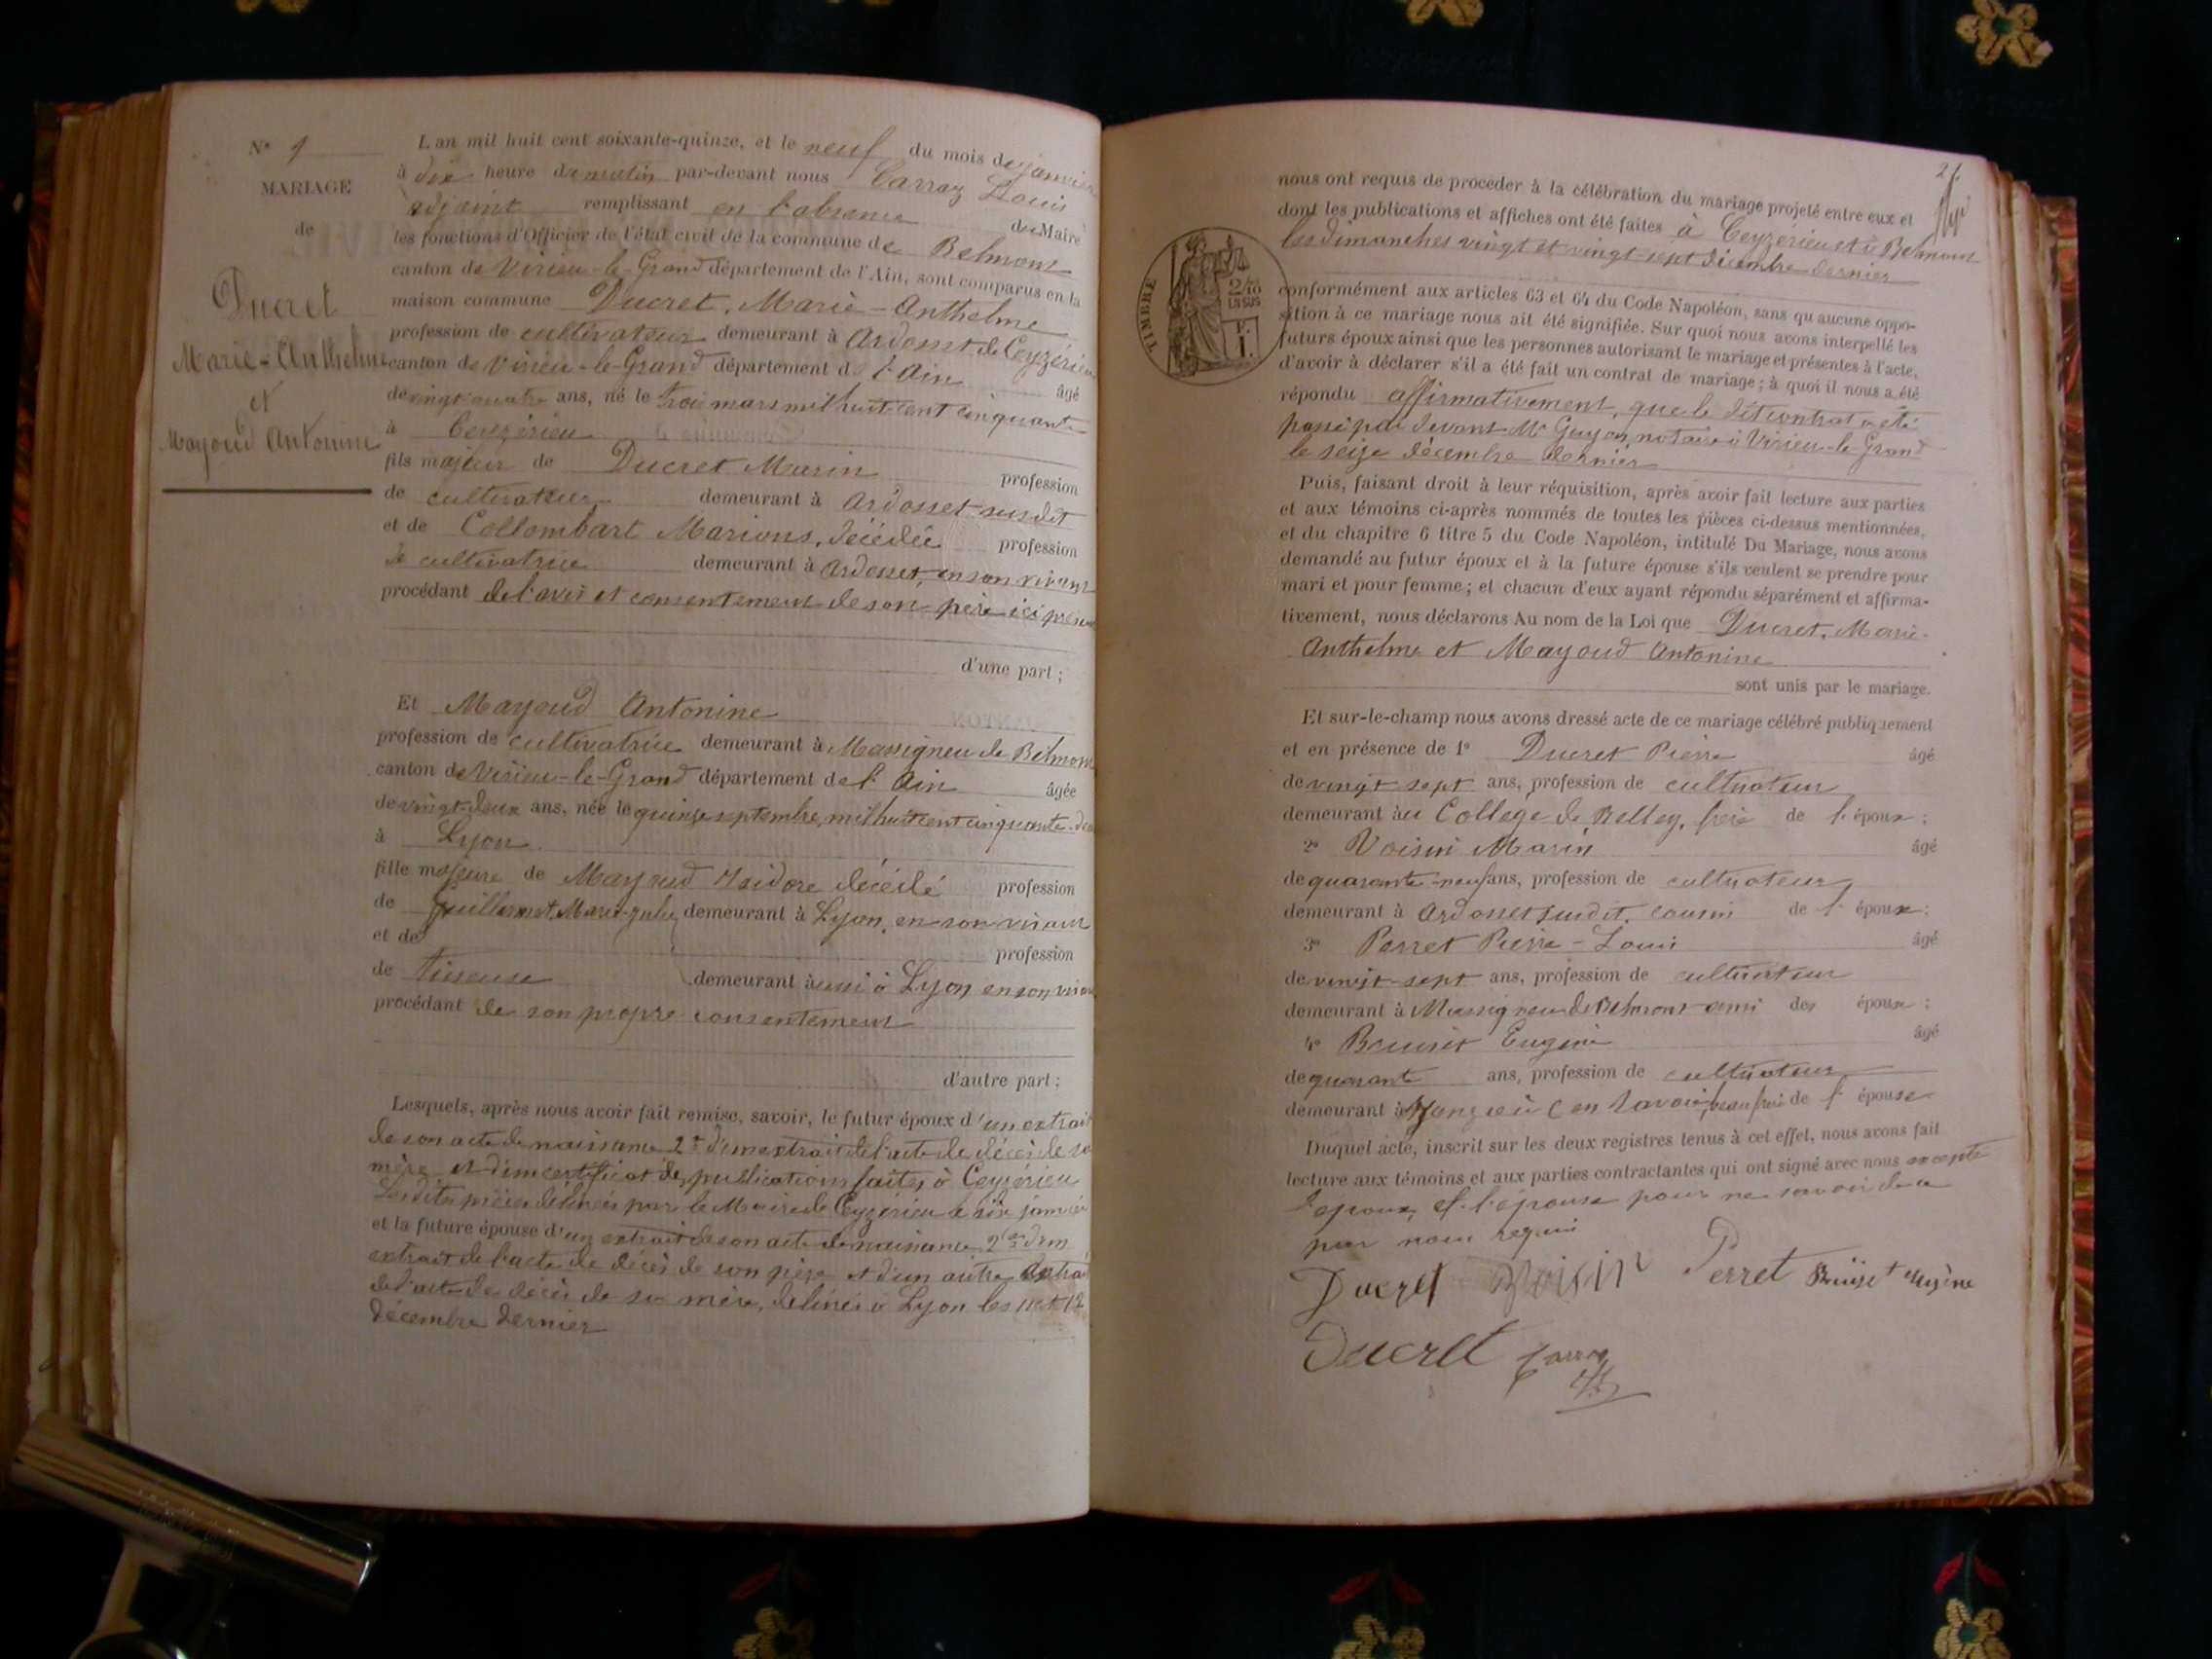 N° 1
MARIAGE
de
Ducret
Marie-Anthelme
et
Mayoud Antonine
L'an mil huit cent soixante-quinze, et le neuf du mois de janvier
à dix heure du matin par-devant nous Carraz Louis
adjoint remplissant en l'absence du Maire
les fonctions d'Officier de l'état civil de la commune de Belmont
canton de Virieu-le-Grand département de l'Ain, sont comparus en la
maison commune Ducret, Marie-Anthelme
profession de cultivateur demeurant à Ardosset de Ceyzérieu
canton de Virieu-le-Grand département de l'Ain âgé
de vingt quatre ans, né le trois mars mil huit cent cinquante
à Ceyzérieu
fils majeur de Ducret Marin profession
de cultivateur demeurant à Ardosset susdit
et de Collombart Marions, décédée profession
de cultivatrice demeurant à Ardosset, en son vivant
procédant de l'avis et consentement de son père ici présent
d'une part ;
Et Mayoud Antonine
profession de cultivatrice demeurant à Massigneu de Belmont
canton de Virieu-le-Grand département de l'Ain âgée
de vingt-deux ans, née le quinze septembre, mil huit cent cinquante-deux
à Lyon
fille majeure de Mayoud Isidore décédé profession
de Guillermet, Marie-Julie demeurant à Lyon, en son vivant
et de profession
de tisseuse demeurant aussi à Lyon en son vivant
procédant de son propre consentement
d'autre part ;
Lesquels, après nous avoir fait remise, savoir, le futur époux d'un extrait
de son acte de naissance 2° d'un extrait de l'acte de décès de sa
mère et d'un certificat de publications faites à Ceyzérieu
Lesdites pièces délivrées par le Maire de Ceyzérieu le six janvier
et la future épouse d'un extrait de son acte de naissance 2° d'un
extrait de l'acte de décès de son père et d'un autre extrait
de l'acte de décès de sa mère, délivrés à Lyon les 11 et 12
décembre dernier
21
nous ont requis de procéder à la célébration du mariage projeté entre eux et
dont les publications et affiches ont été faites à Ceyzérieu et à Belmont
les dimanches vingt et vingt-sept décembre dernier
TIMBRE
2/10
EN SUS
conformément aux articles 63 et 64 du Code Napoléon, sans qu'aucune oppo-
sition à ce mariage nous ait été signifiée. Sur quoi nous avons interpellé les
futurs époux ainsi que les personnes autorisant le mariage et présentes à l'acte,
d'avoir à déclarer s'il a été fait un contrat de mariage ; à quoi il nous a été
répondu affirmativement, que le dit contrat a été
passé par devant Me Guyon, notaire à Virieu-le-Grand
le seize décembre dernier
Puis, faisant droit à leur réquisition, après avoir fait lecture aux parties
et aux témoins ci-après nommés de toutes les pièces ci-dessus mentionnées,
et du chapitre 6 titre 5 du Code Napoléon, intitulé Du Mariage, nous avons
demandé au futur époux et à la future épouse s'ils veulent se prendre pour
mari et pour femme ; et chacun d'eux ayant répondu séparément et affirma-
tivement, nous déclarons Au nom de la Loi que Ducret, Marie-
Anthelme et Mayoud Antonine
sont unis par le mariage.
Et sur-le-champ nous avons dressé acte de ce mariage célébré publiquement
et en présence de 1° Ducret Pierre âgé
de vingt sept ans, profession de cultivateur
demeurant au Collège de Belley, frère de l'époux ;
2° Voisin Marin âgé
de quarante-neuf ans, profession de cultivateur
demeurant à Ardosset susdit, cousin de l'époux ;
3° Perret Pierre-Louis âgé
de vingt-sept ans, profession de cultivateur
demeurant à Massigneu de Belmont ami des époux ;
4° Bruiset Eugène âgé
de quarante ans, profession de cultivateur
demeurant à en Savoie, beau frère de l'épouse
Duquel acte, inscrit sur les deux registres tenus à cet effet, nous avons fait
lecture aux témoins et aux parties contractantes qui ont signé avec nous excepté
l'époux, et l'épouse pour ne savoir de ce
par nous requis
Ducret Voisin Perret Bruiset Eugène
Ducret Carraz